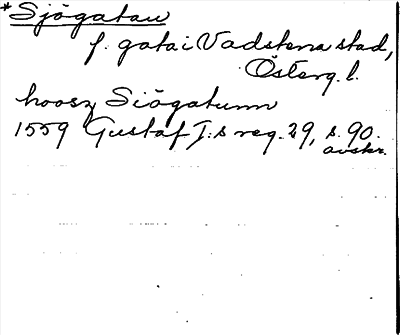 *Sjögatan
f. gata i Vadstena stad,
Österg. l.
hoosz Siögatunn
1559 Gustaf I:s reg. 29, s. 90.
avskr.